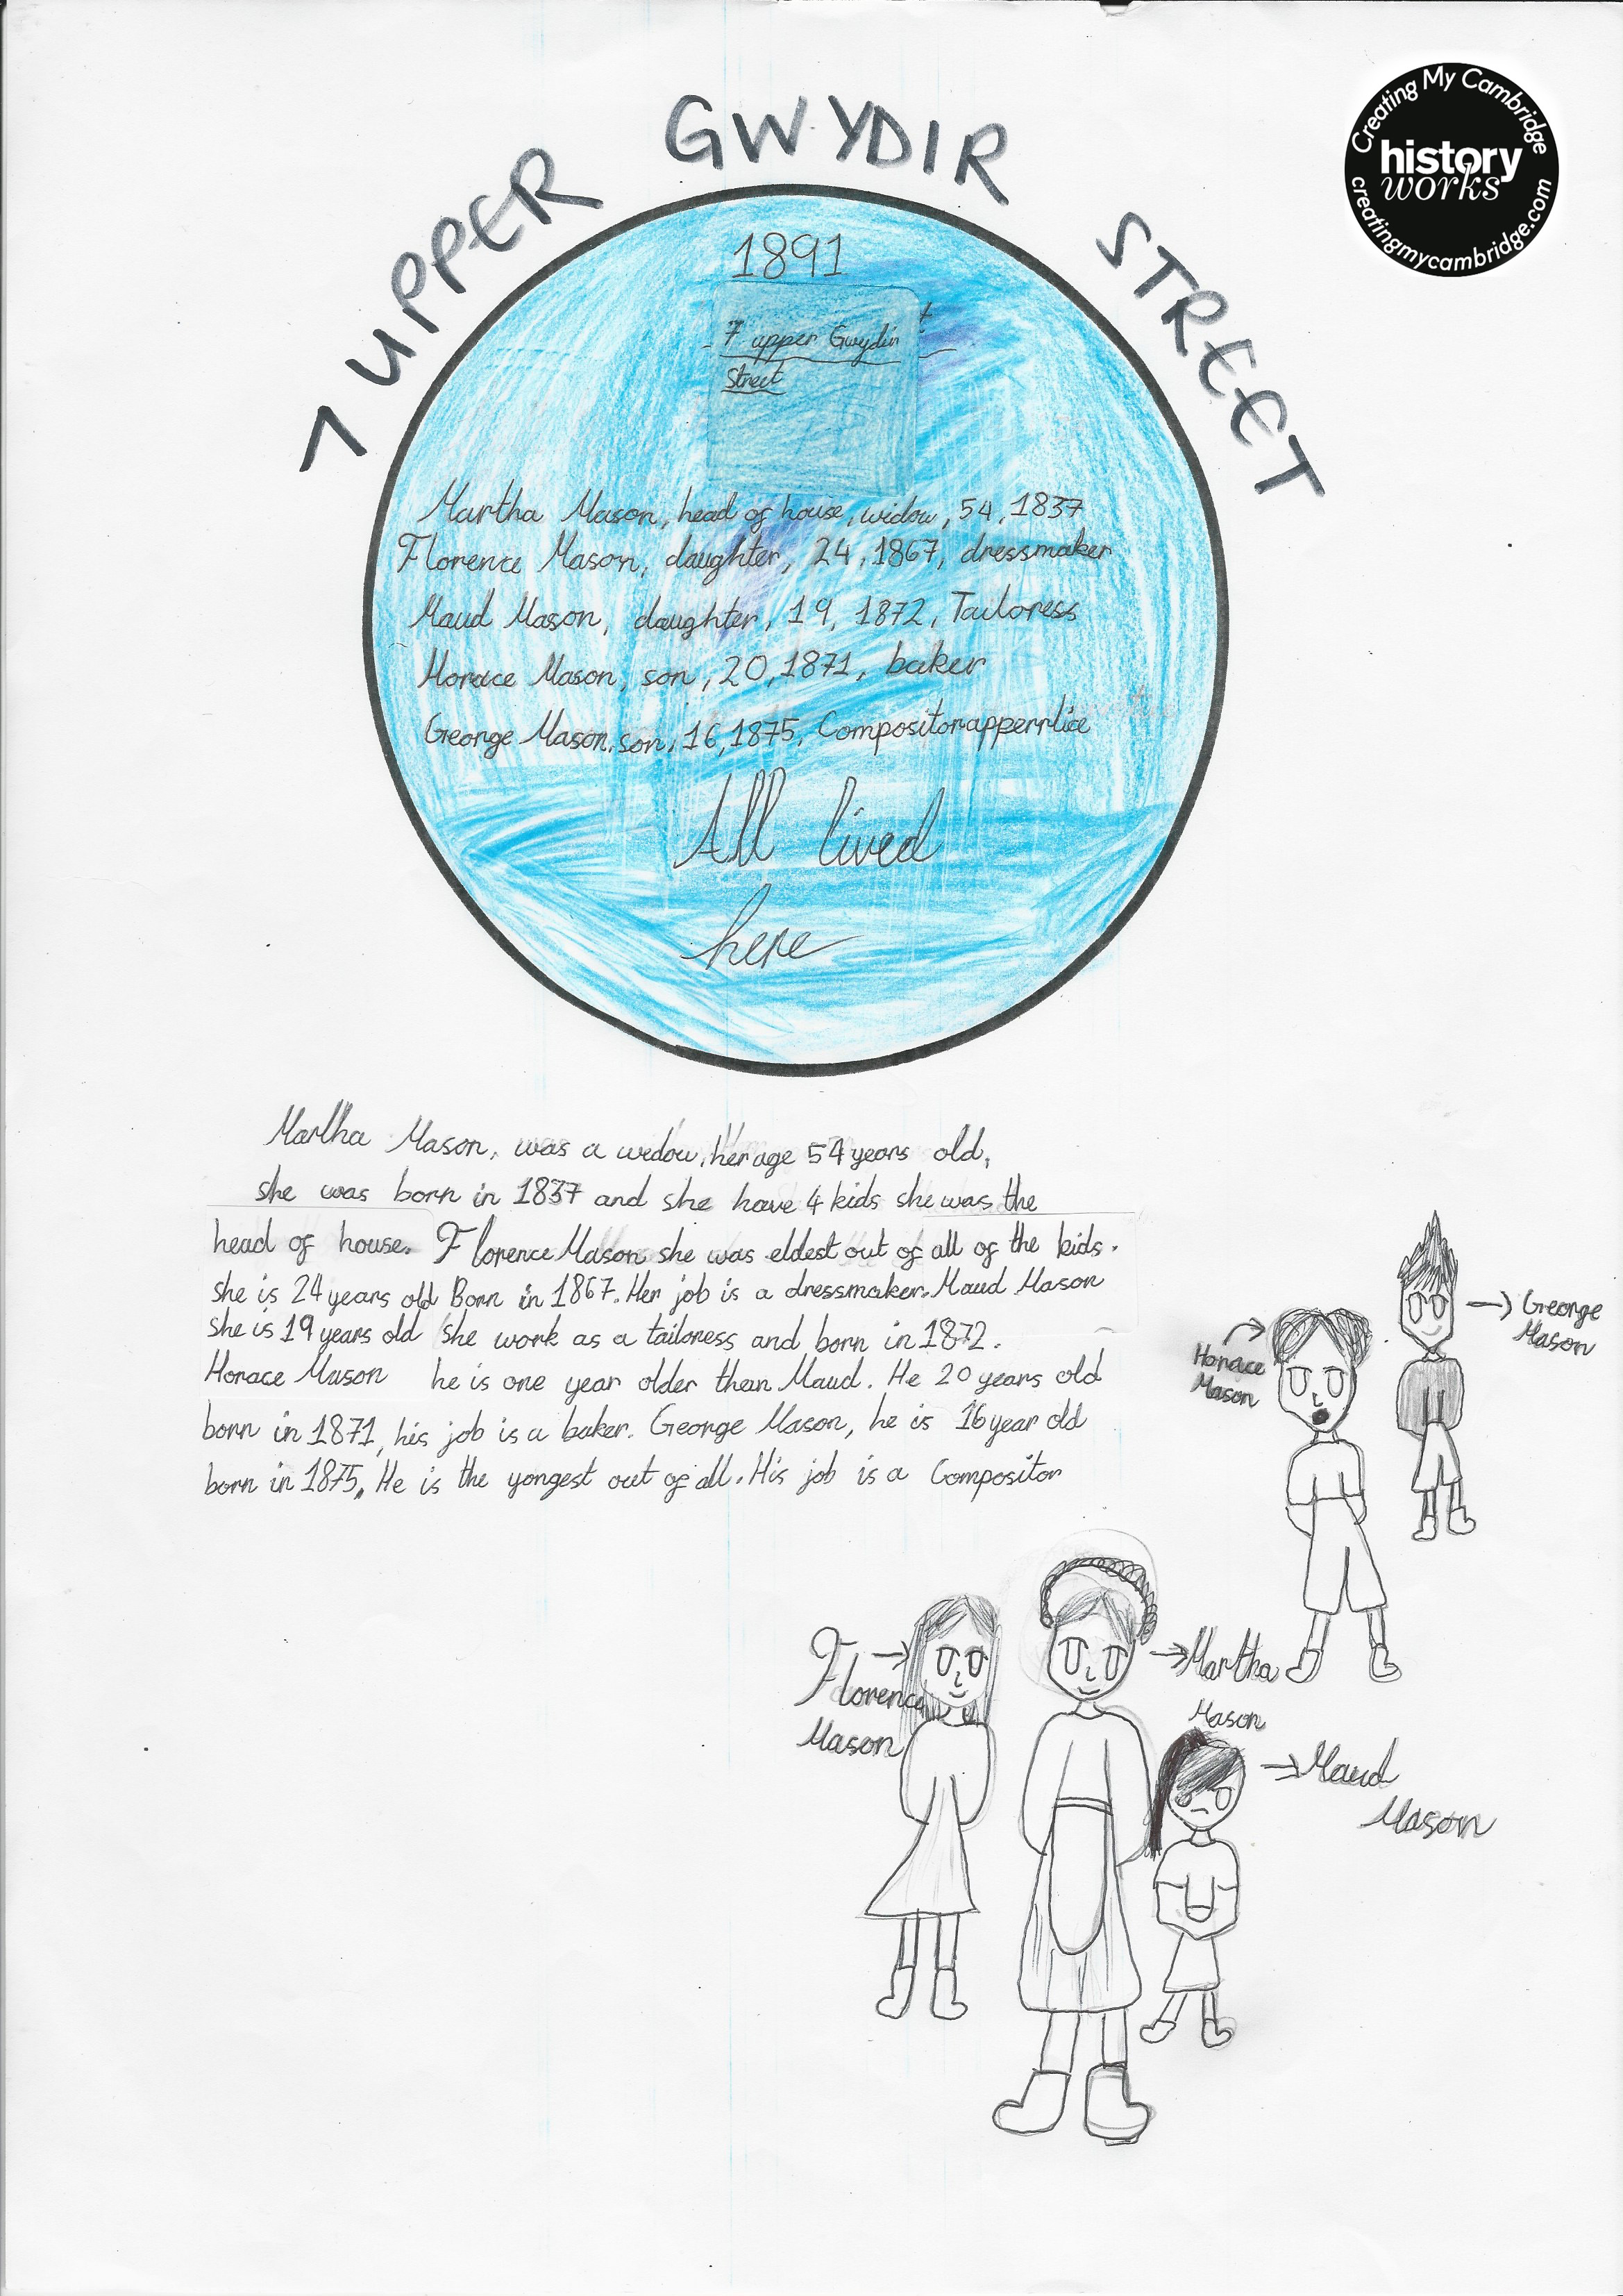 7 UPPER GWYDIR STREET
Creating My Cambridge
history
works
creatingmycambridge.com
1891
7 upper Gwydir
Street
Martha Mason, head of house, widow, 54, 1837
Florence Mason, daughter, 24, 1867, dressmaker
Maud Mason, daughter, 19, 1872, Tailoress
Horace Mason, son, 20, 1871, baker
George Mason, son, 16, 1875, Compositor apperrtice
All lived
here
Martha Mason, was a wedow, Her age 54 years old,
she was born in 1837 and she have 4 kids she was the
head of house. Florence Mason she was eldest out of all of the kids.
she is 24 years old Born in 1867. Her job is a dressmaker. Maud Mason
she is 19 years old she work as a tailoress and born in 1872.
Horace Mason he is one year older than Maud. He 20 years old
born in 1871, his job is a baker. George Mason, he is 16 year old
born in 1875. He is the yongest out of all. His job is a Compositor
George
Mason
Horace
Mason
Florence
Mason
Martha
Mason
Maud
Mason